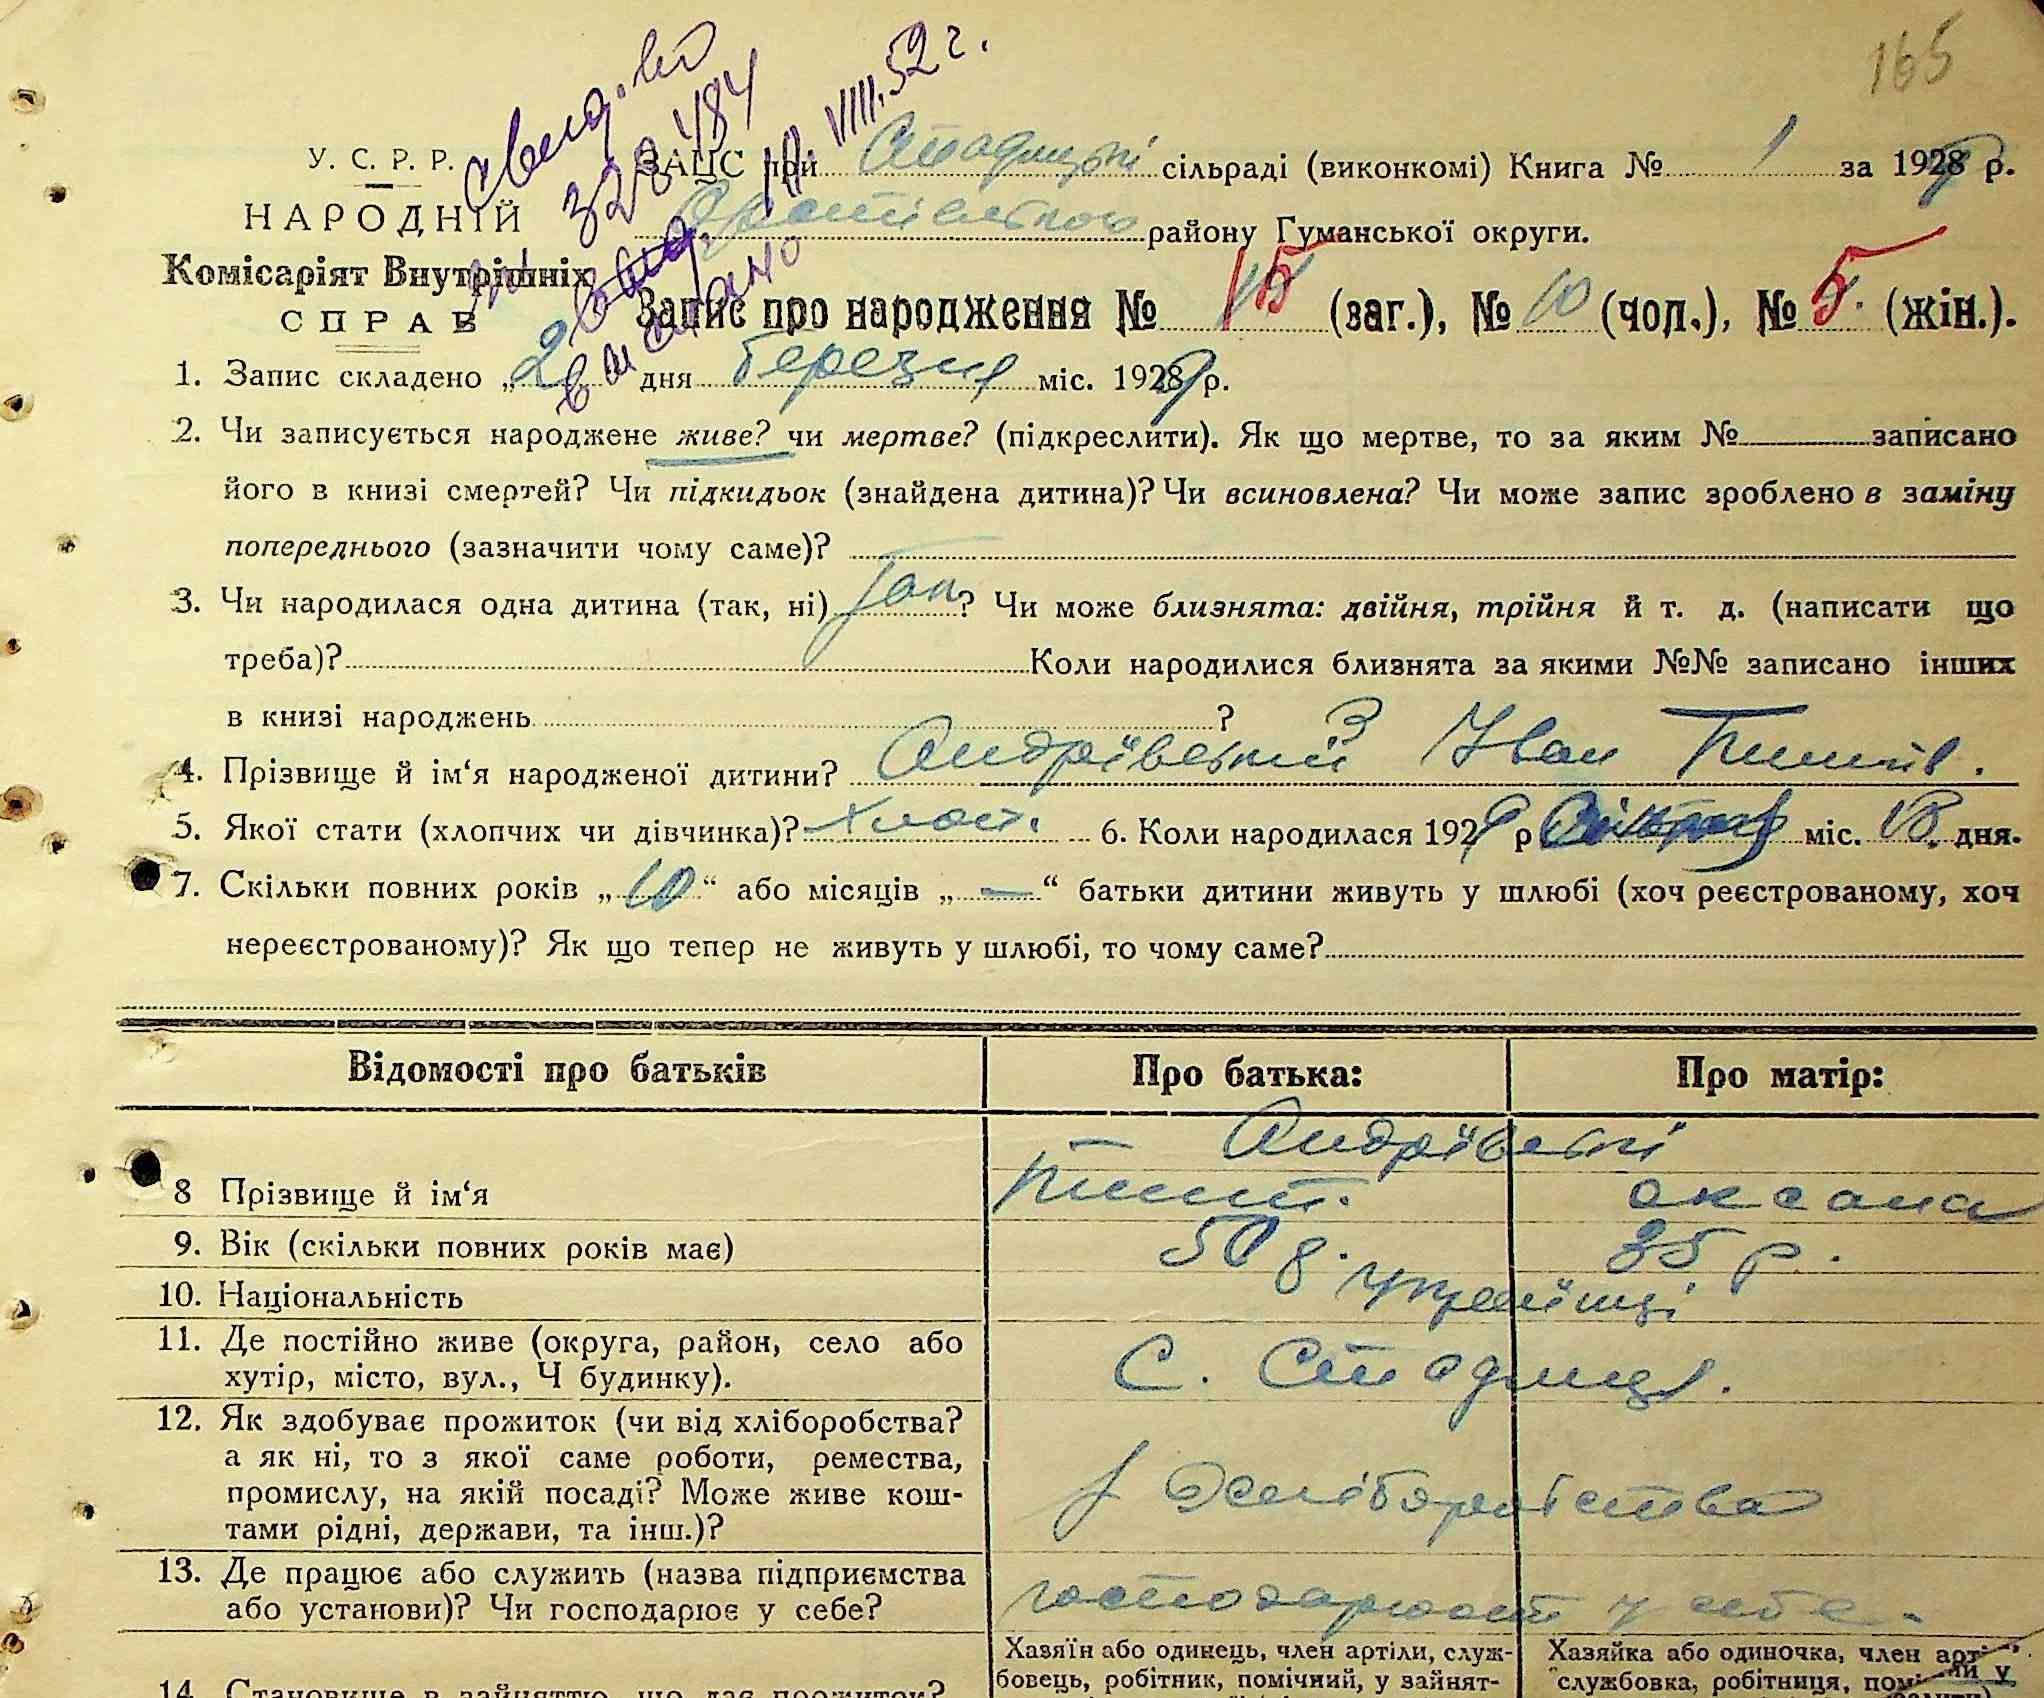 165
свид.во
328484
10.VIII.52 г.
видано
У. С. Р. Р.
НАРОДНІЙ
Комісаріят Внутрішніх
СПРАВ
ЗАЦС при Стадницькі сільраді (виконкомі) Книга № 1 за 1929 р.
району Гуманської округи.
Запис про народження № 15 (заг.), № 10 (чол.), № 5 (жін.).
1. Запис складено „2“ дня березня міс. 1929 р.
2. Чи записується народжене живе? чи мертве? (підкреслити). Як що мертве, то за яким № записано
його в книзі смертей? Чи підкидьок (знайдена дитина)? Чи всиновлена? Чи може запис зроблено в заміну
попереднього (зазначити чому саме)?
3. Чи народилася одна дитина (так, ні) Так? Чи може близнята: двійня, трійня й т. д. (написати що
треба)? Коли народилися близнята за якими №№ записано інших
в книзі народжень ?
4. Прізвище й ім‘я народженої дитини? Андрієвський Іван Тимків.
5. Якої стати (хлопчих чи дівчинка)? хлоп. 6. Коли народилася 1929 р міс. 18 дня.
7. Скільки повних років „10“ або місяців „—“ батьки дитини живуть у шлюбі (хоч реєстрованому, хоч
нереєстрованому)? Як що тепер не живуть у шлюбі, то чому саме?
Відомості про батьків Про батька: Про матір:
Андрієвські
8 Прізвище й ім‘я Тимк. оксана
9. Вік (скільки повних років має) 50 р. 35 р.
10. Національність українці
11. Де постійно живе (округа, район, село або
хутір, місто, вул., Ч будинку). С. Стадниця.
12. Як здобуває прожиток (чи від хліборобства?
а як ні, то з якої саме роботи, ремества,
промислу, на якій посаді? Може живе кош-
тами рідні, держави, та інш.)? з Хліборобства
13. Де працює або служить (назва підприємства
або установи)? Чи господарює у себе? господарюють у себе.
Хазяїн або одинець, член артіли, служ- Хазяйка або одиночка, член
бовець, робітник, помічний, у зайнят- службовка, робітниця,
14. Становище в зайняттю, що дає прожиток?